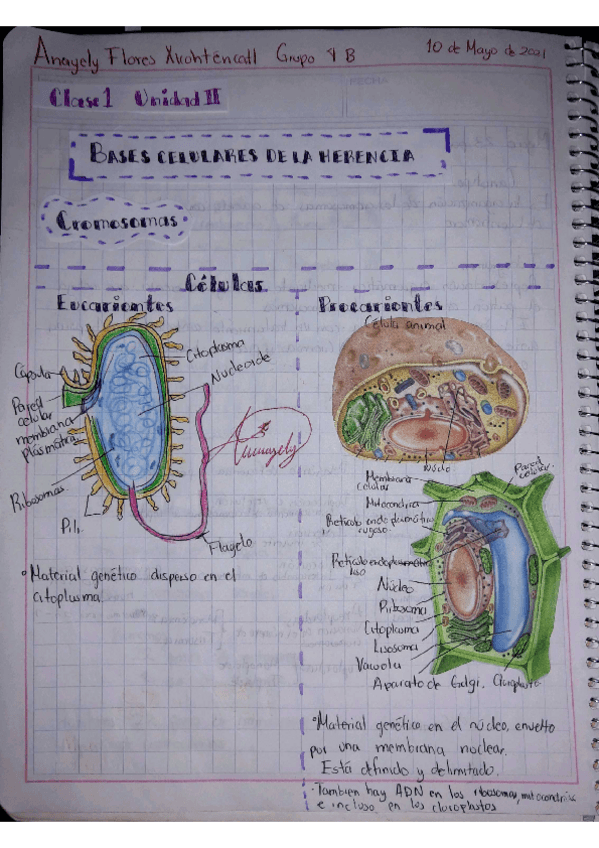 Anayely Flores Xicohténcatl Grupo 4 B
10 de Mayo de 2021
FECHA
Clase 1 Unidad II
BASES CELULARES DE LA HERENCIA
Cromosomas
Células
Eucariontes
Cápsula
Pared
celular
membrana
plasmática
Ribosomas
Pili
Citoplasma
Nucleoide
Anayely
Flagelo
°Material genético disperso en el
citoplasma
Procariontes
Célula animal
Núcleo
Membrana
celular
Pared
celular
Mitocondria
Retículo endoplasmático
rugoso
Retículo endoplasmático
liso
Núcleo
Ribosoma
Citoplasma
Lisosoma
Vacuola
Aparato de Golgi. Cloroplasto
°Material genético en el núcleo, envuelto
por una membrana nuclear.
Está definido y delimitado.
·Tambien hay ADN en los ribosomas, mitocondrias
e incluso en los